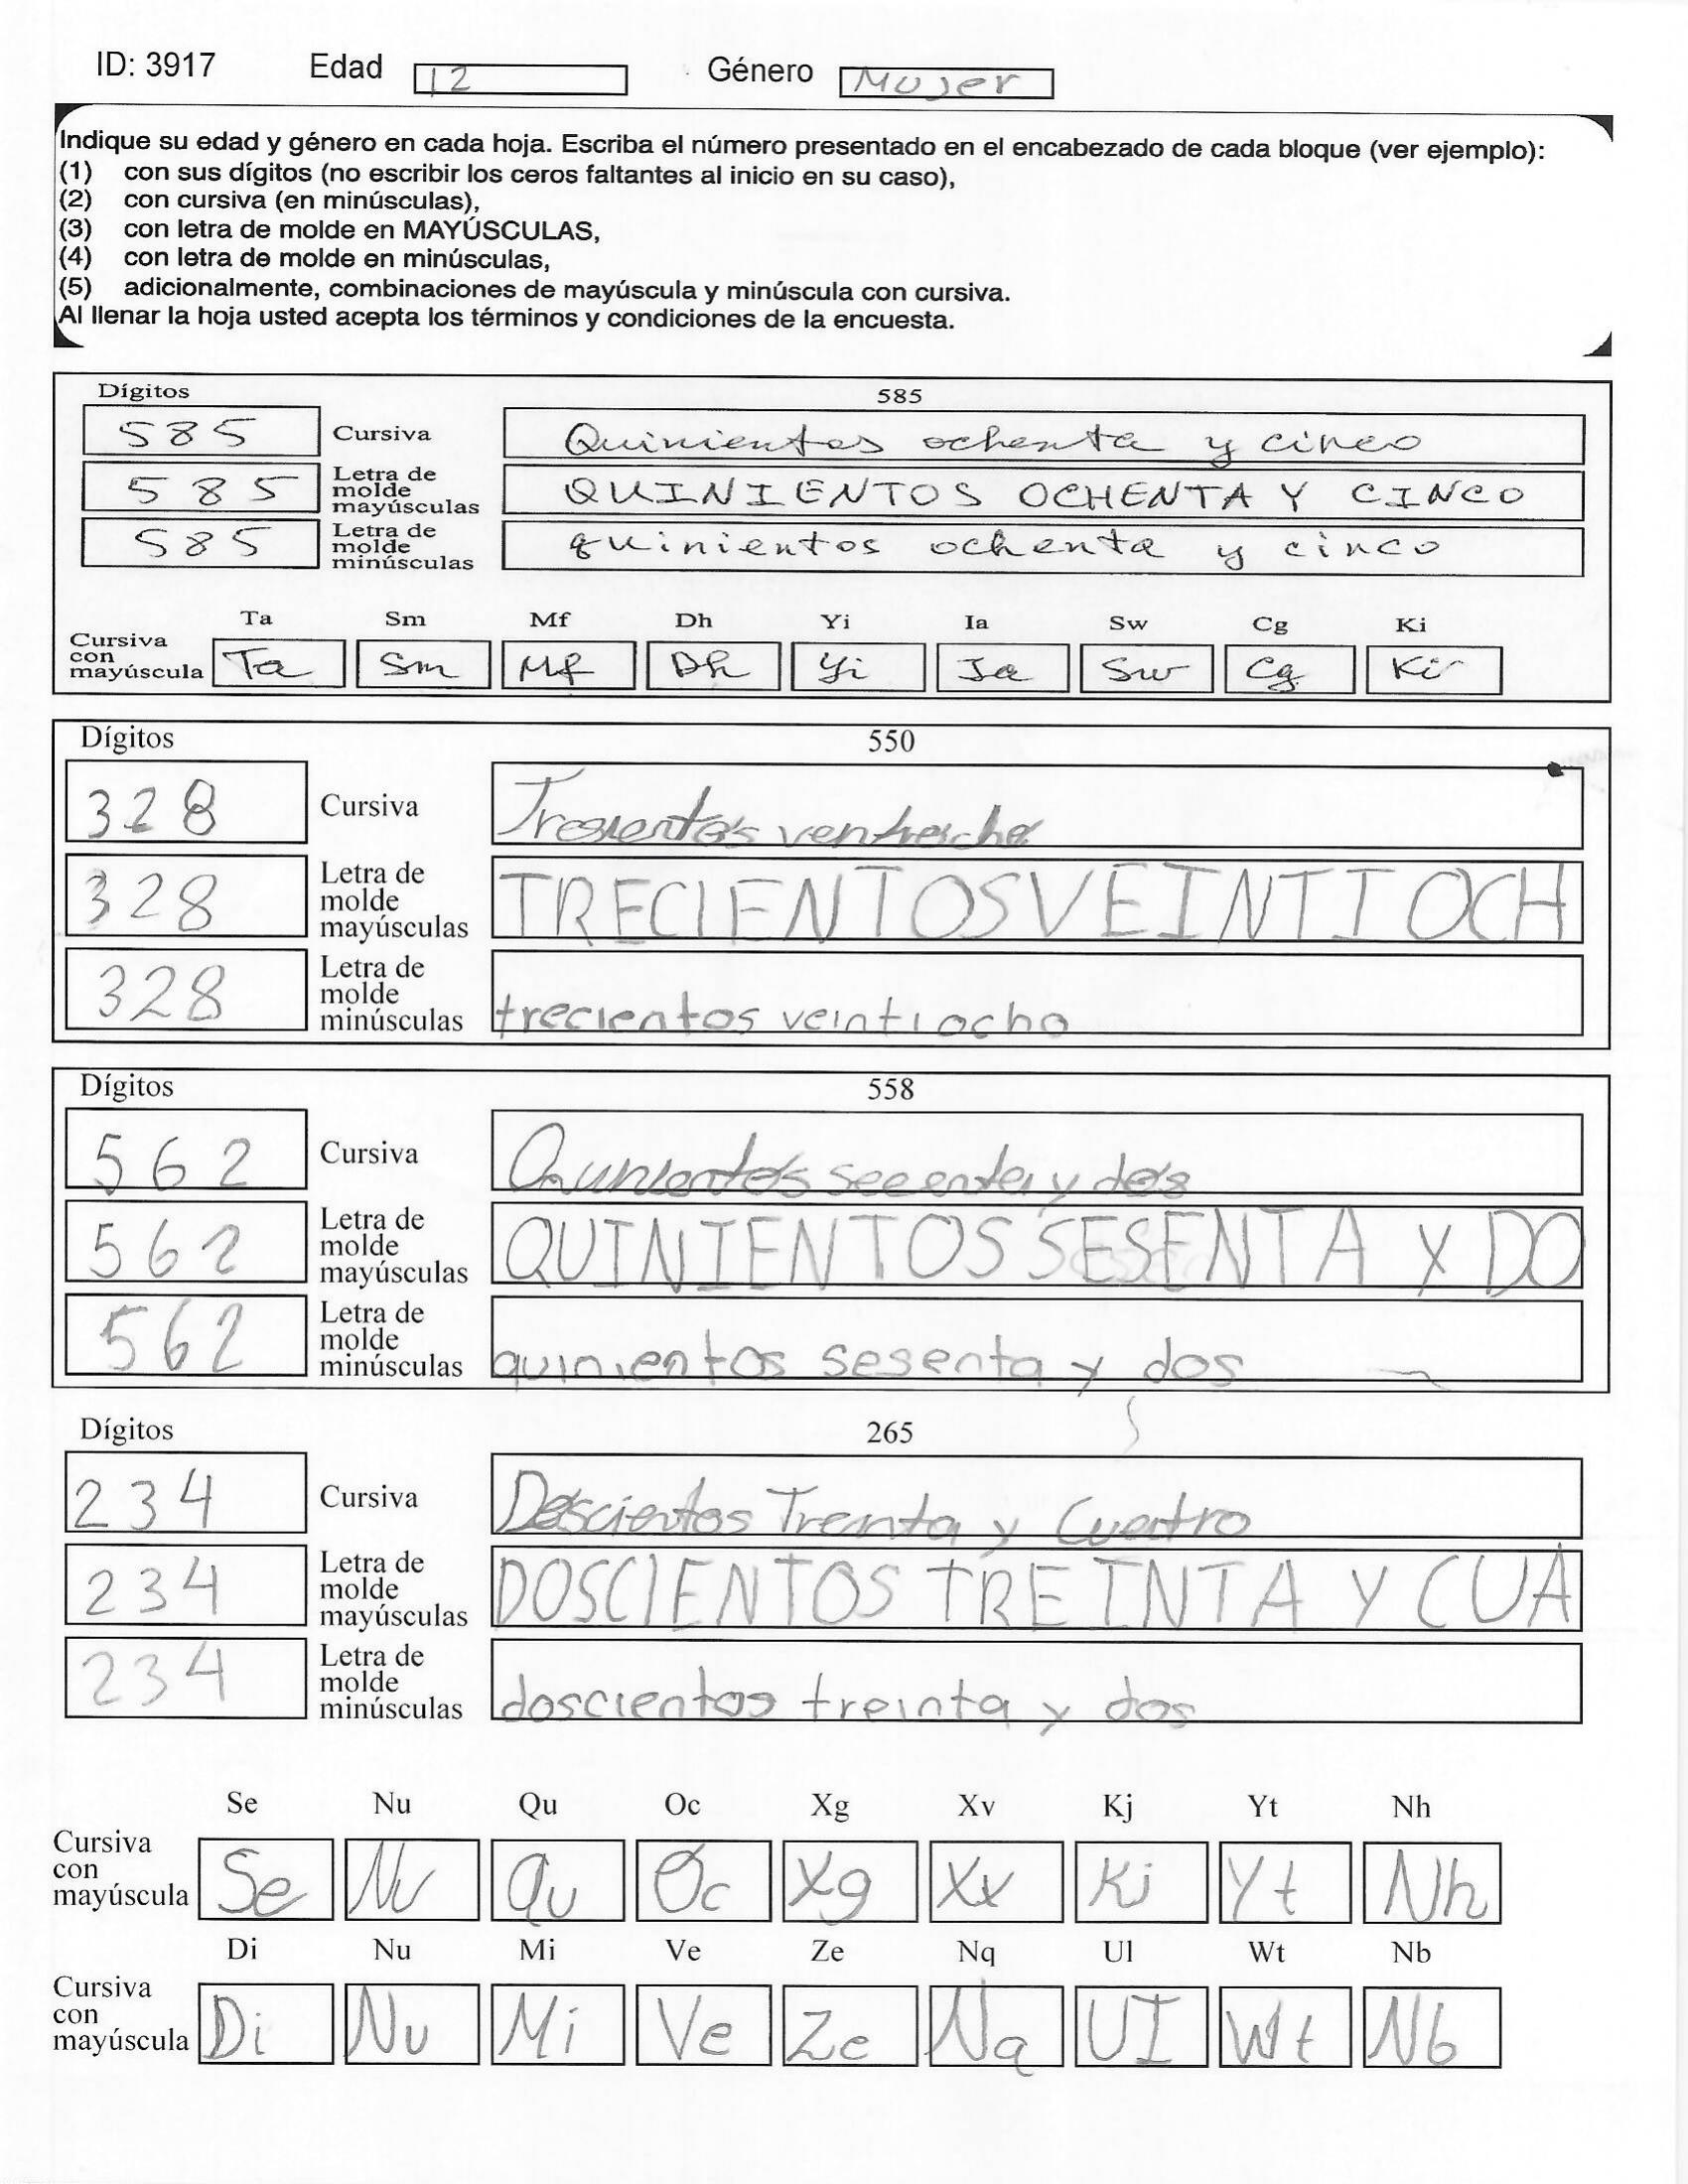 ID: 3917 Edad 12 Género Mujer
Indique su edad y género en cada hoja. Escriba el número presentado en el encabezado de cada bloque (ver ejemplo):
(1) con sus dígitos (no escribir los ceros faltantes al inicio en su caso),
(2) con cursiva (en minúsculas),
(3) con letra de molde en MAYÚSCULAS,
(4) con letra de molde en minúsculas,
(5) adicionalmente, combinaciones de mayúscula y minúscula con cursiva.
Al llenar la hoja usted acepta los términos y condiciones de la encuesta.
Dígitos 585
585 Cursiva Quinientos ochenta y cinco
585 Letra de molde mayúsculas QUINIENTOS OCHENTA Y CINCO
585 Letra de molde minúsculas quinientos ochenta y cinco
Ta Sm Mf Dh Yi Ia Sw Cg Ki
Cursiva con mayúscula Ta Sm Mf Dh Yi Ia Sw Cg Ki
Dígitos 550
328 Cursiva
328 Letra de molde mayúsculas TRECIENTOS VEINTIOCH
328 Letra de molde minúsculas trecientos veintiocho
Dígitos 558
562 Cursiva y dos
562 Letra de molde mayúsculas QUINIENTOS SESENTA Y DO
562 Letra de molde minúsculas quinientos sesenta y dos
Dígitos 265
234 Cursiva Doscientos Treinta y Cuatro
234 Letra de molde mayúsculas DOSCIENTOS TREINTA Y CUA
234 Letra de molde minúsculas doscientos treinta y dos
Se Nu Qu Oc Xg Xv Kj Yt Nh
Cursiva con mayúscula Se Nu Qu Oc Xg Xv Kj Yt Nh
Di Nu Mi Ve Ze Nq Ul Wt Nb
Cursiva con mayúscula Di Nu Mi Ve Ze Nq UI Wt Nb